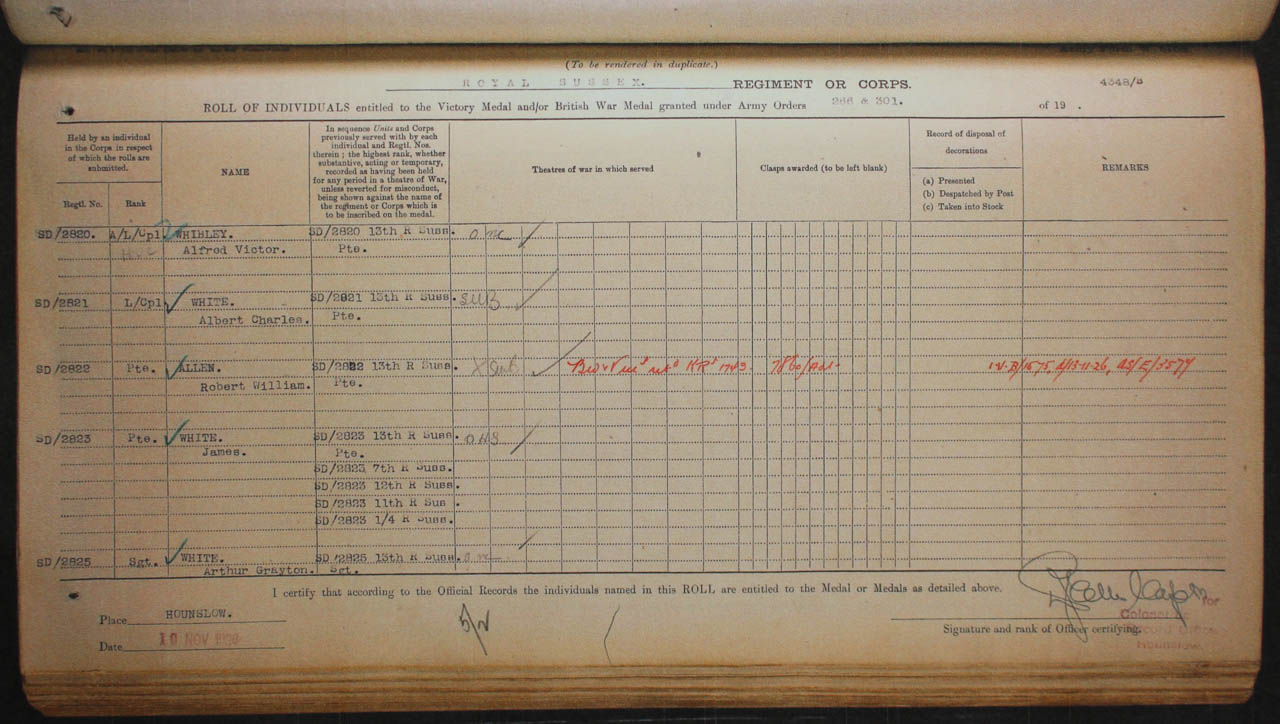 (To be rendered in duplicate.)
ROYAL SUSSEX. REGIMENT OR CORPS. 4348/B
ROLL OF INDIVIDUALS entitled to the Victory Medal and/or British War Medal granted under Army Orders 266 & 301. of 19 .
Held by an individual in the Corps in respect of which the rolls are submitted.
Regtl. No.
Rank
NAME
In sequence Units and Corps previously served with by each individual and Regtl. Nos. therein ; the highest rank, whether substantive, acting or temporary, recorded as having been held for any period in a theatre of War, unless reverted for misconduct, being shown against the name of the regiment or Corps which is to be inscribed on the medal.
Theatres of war in which served
Clasps awarded (to be left blank)
Record of disposal of decorations
(a) Presented
(b) Despatched by Post
(c) Taken into Stock
REMARKS
SD/2820. A/L/Cpl WHIBLEY. SD/2820 13th R Suss.
Alfred Victor. Pte.
SD/2821 L/Cpl WHITE. SD/2821 13th R Suss. SWB
Albert Charles. Pte.
SD/2822 Pte. ALLEN. SD/2822 13th R Suss. KR 1743
Robert William. Pte.
SD/2823 Pte. WHITE. SD/2823 13th R Suss.
James. Pte.
SD/2823 7th R Suss.
SD/2823 12th R Suss.
SD/2823 11th R Sus .
SD/2823 1/4 R Suss.
SD/2825 Sgt. WHITE. SD/2825 13th R Suss.
Arthur Grayton. Sgt.
I certify that according to the Official Records the individuals named in this ROLL are entitled to the Medal or Medals as detailed above.
Place HOUNSLOW.
Date 10 NOV 1920
for
Colonel
Signature and rank of Officer certifying.
Record Office
Hounslow.